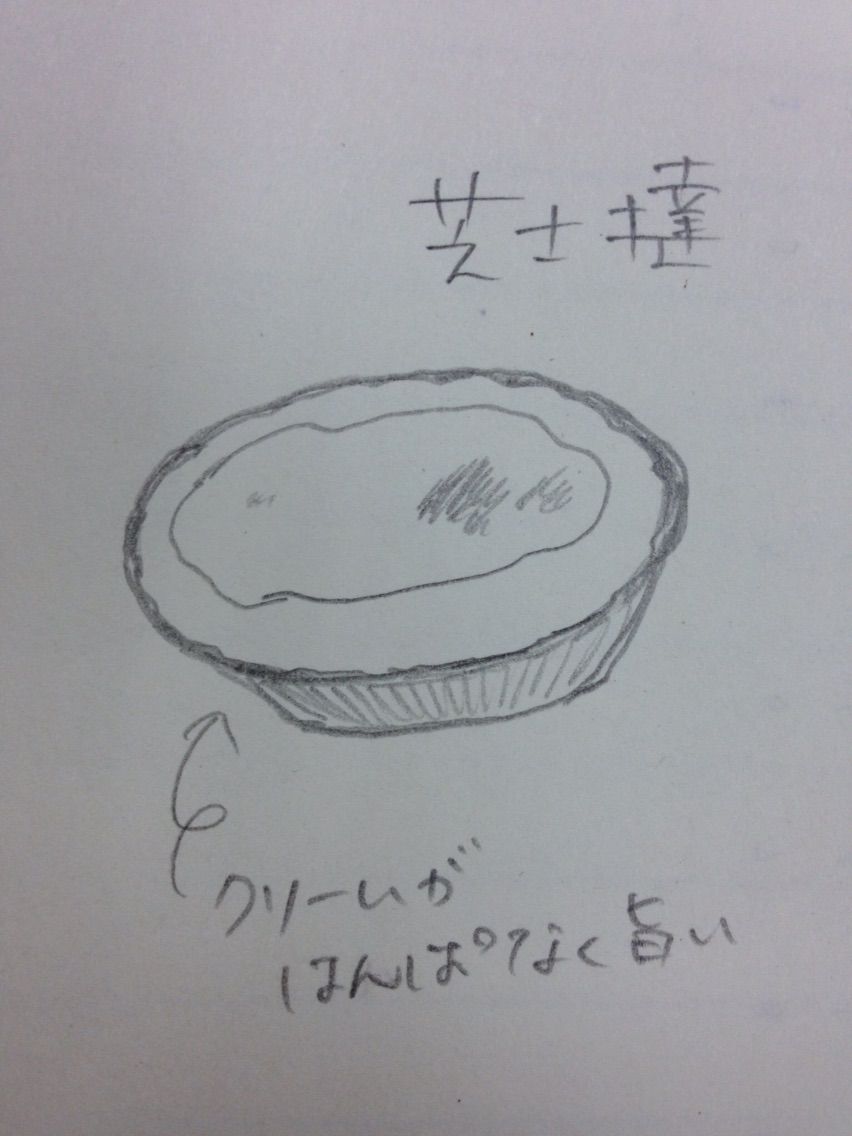 芝士撻
クリームが
はんぱなく旨い